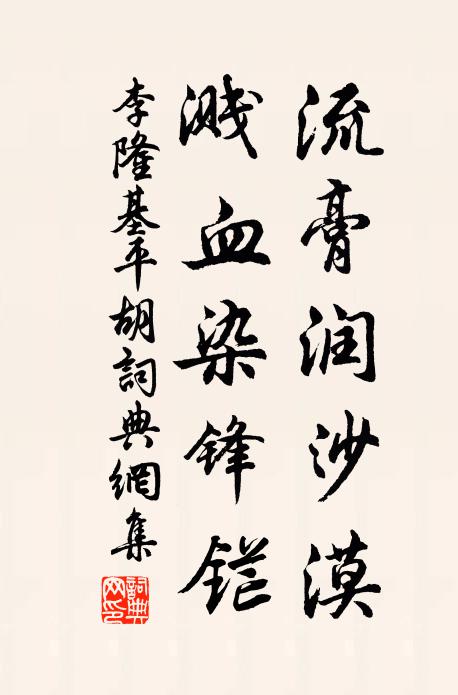 流膏润沙漠
溅血染锋铓
李隆基平胡詞典網集
詞典網印